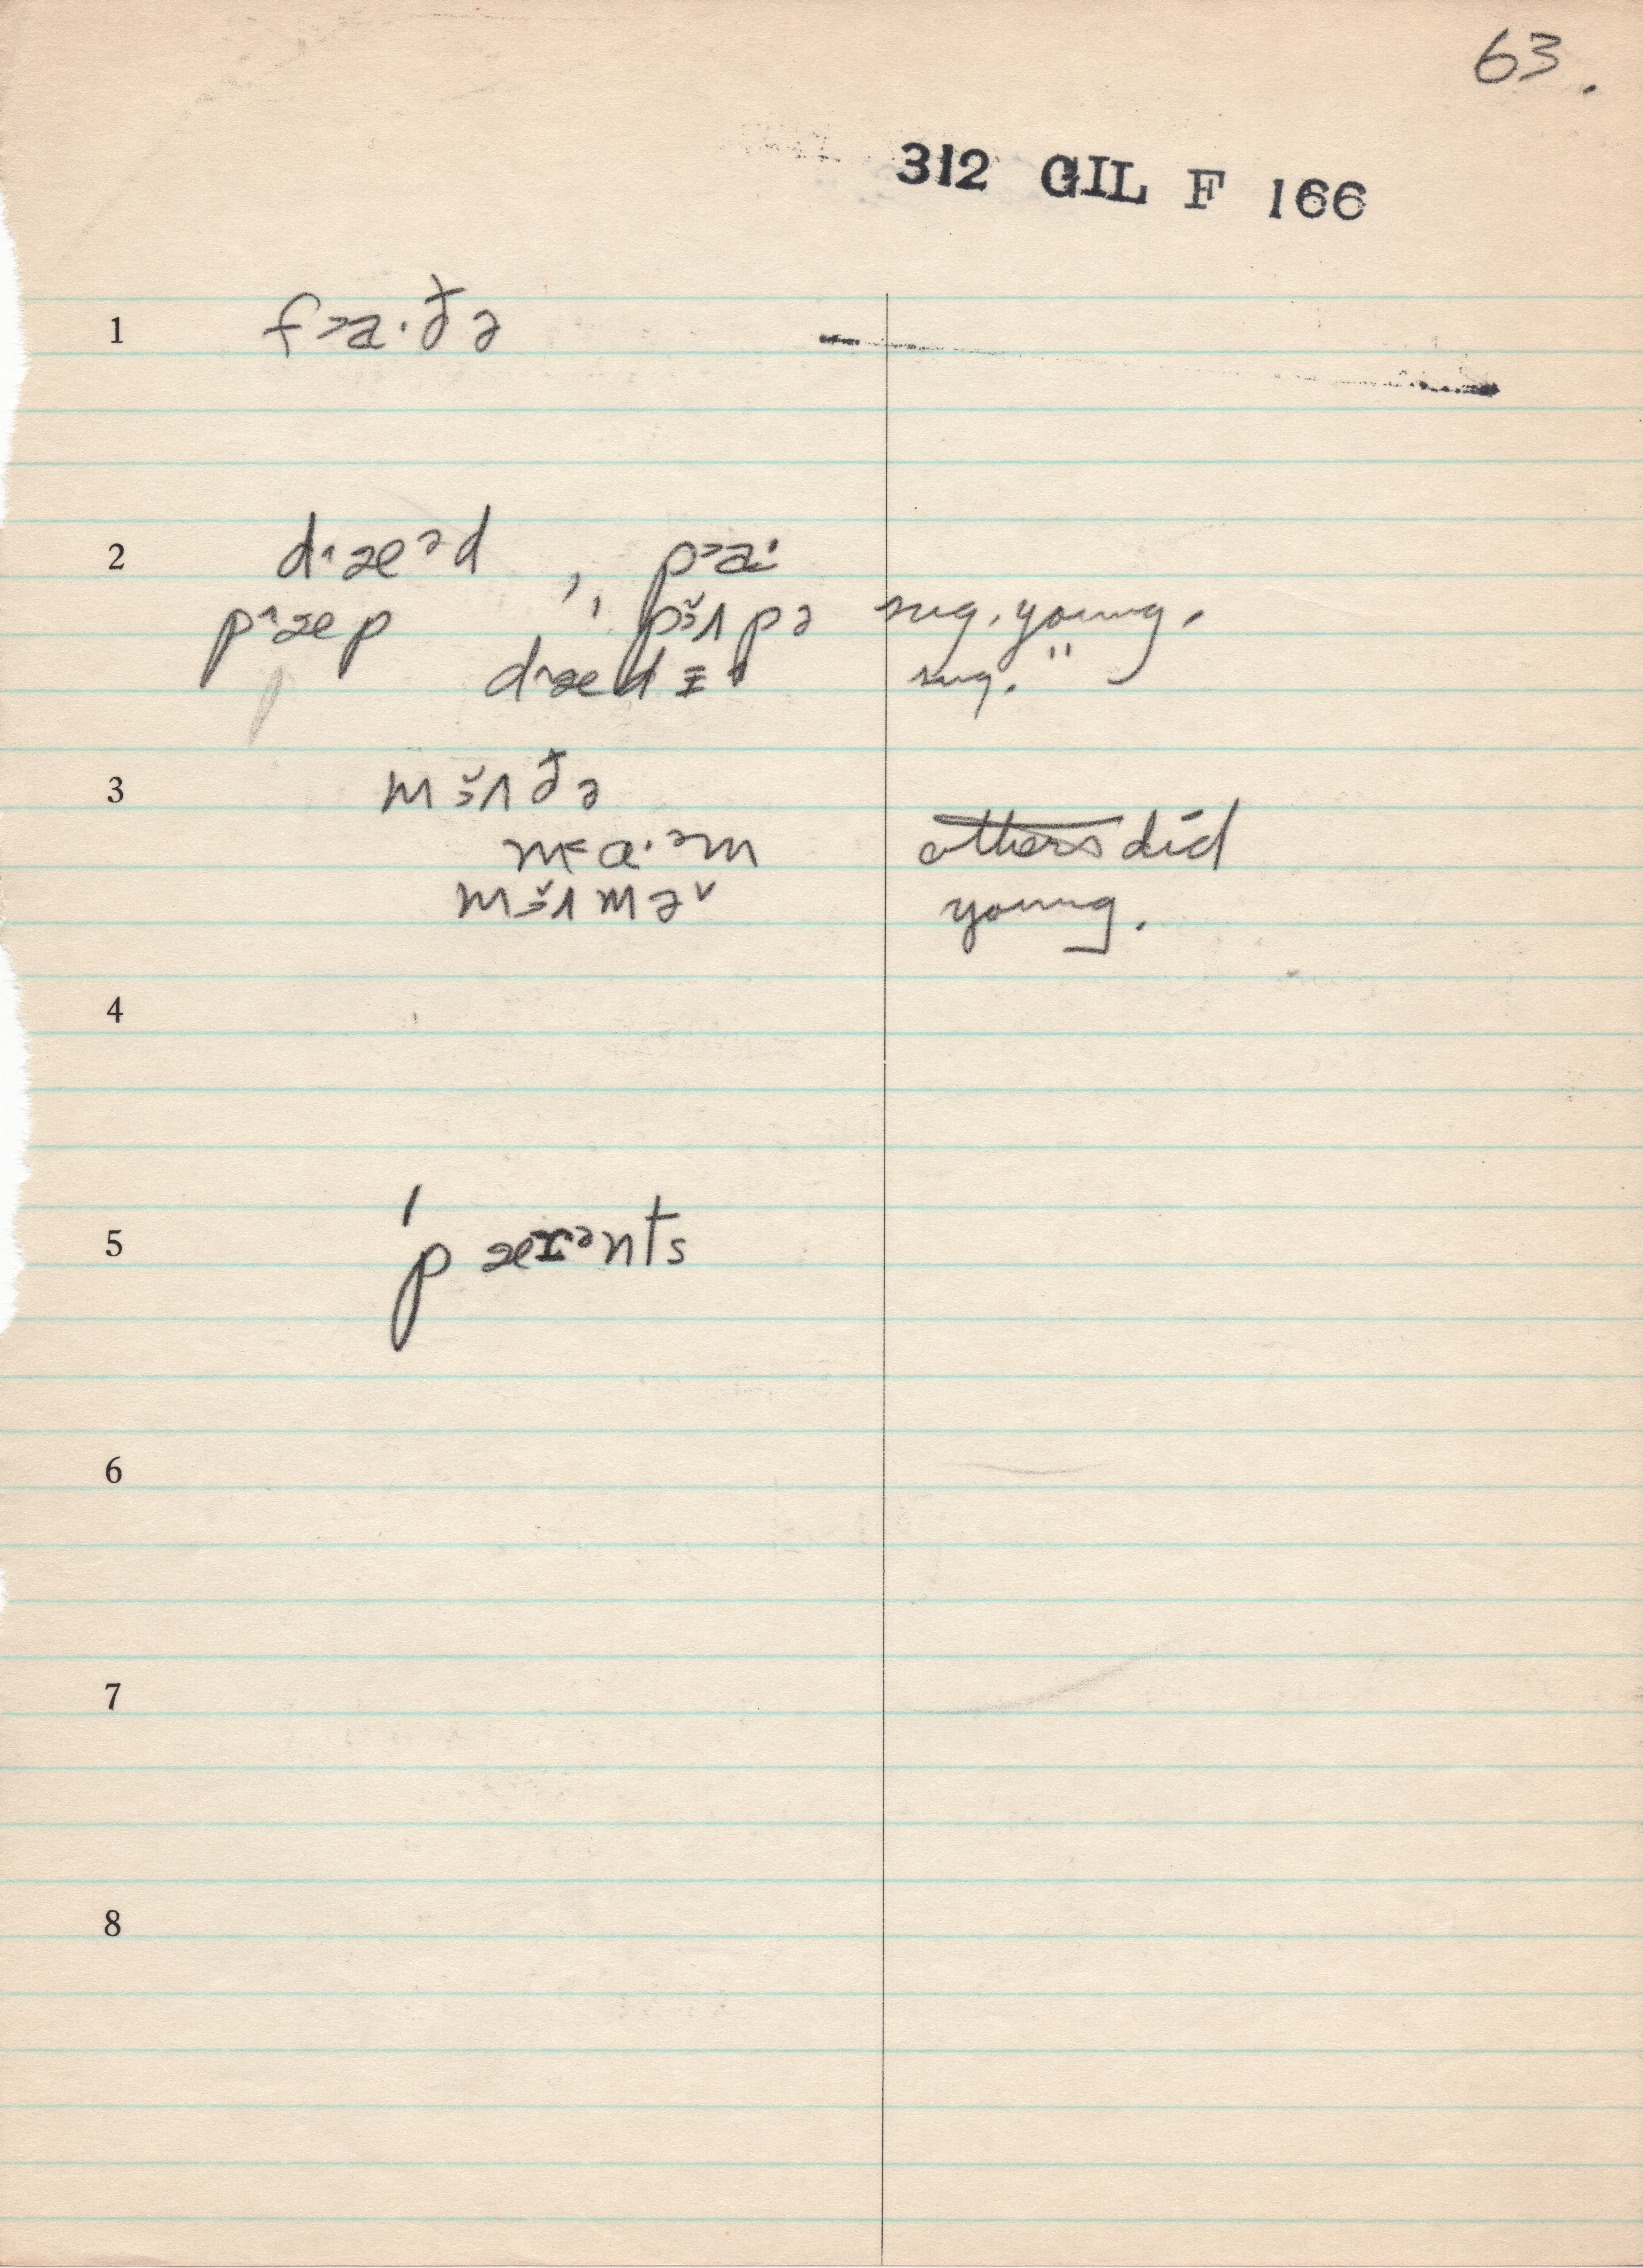 63.
312 GIL F 166
1 f˃a·ðə
2 d˄æᵊd , p˃a·
p˄æp , pɜ̌ʌpə sug. young.
d˄ædɪ sug. "
3 mɜ̌ʌðə
m˂ɑ·ᵊm others did
mɜ̌ʌmə˅ young.
4
5 ˈpærᵊnts
6
7
8